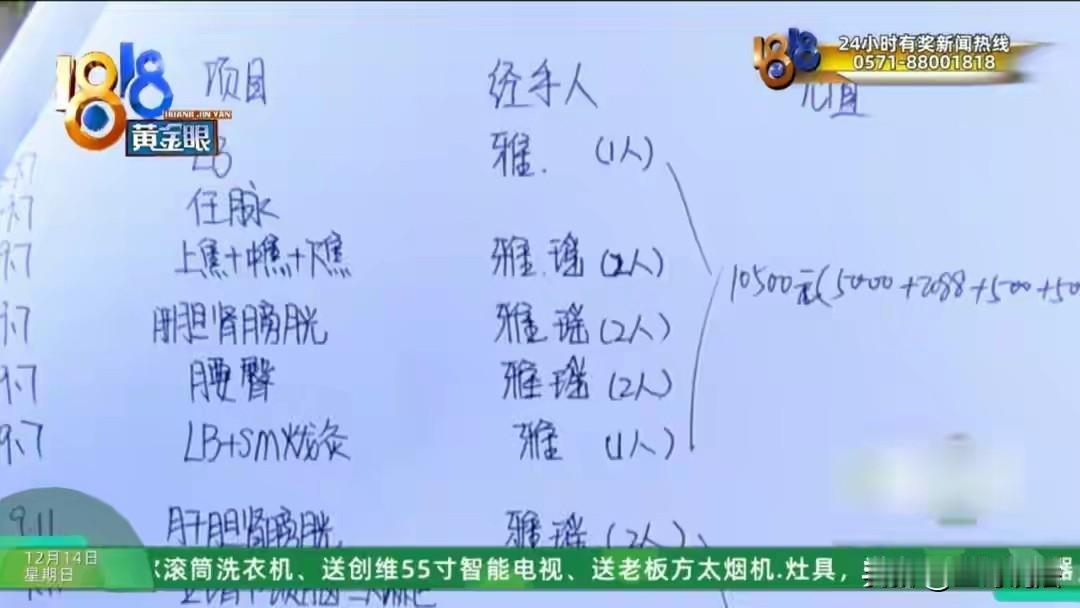 1818
HUANG JIN YAN
黄金眼
1818
24小时有奖新闻热线
0571-88001818
项目 经手人
LB 雅. (1人)
9.7 任脉
9.7 上焦+中焦+下焦 雅.瑶(2人)
10500元(5000+2088+500+50
9.7 肝胆肾膀胱 雅瑶(2人)
9.7 腰臀 雅瑶(2人)
9.7 LB+SM火龙灸 雅 (1人)
9.11 肝胆肾膀胱 雅瑶(2人)
12月14日
星期日
滚筒洗衣机、送创维55寸智能电视、送老板方太烟机.灶具，
器